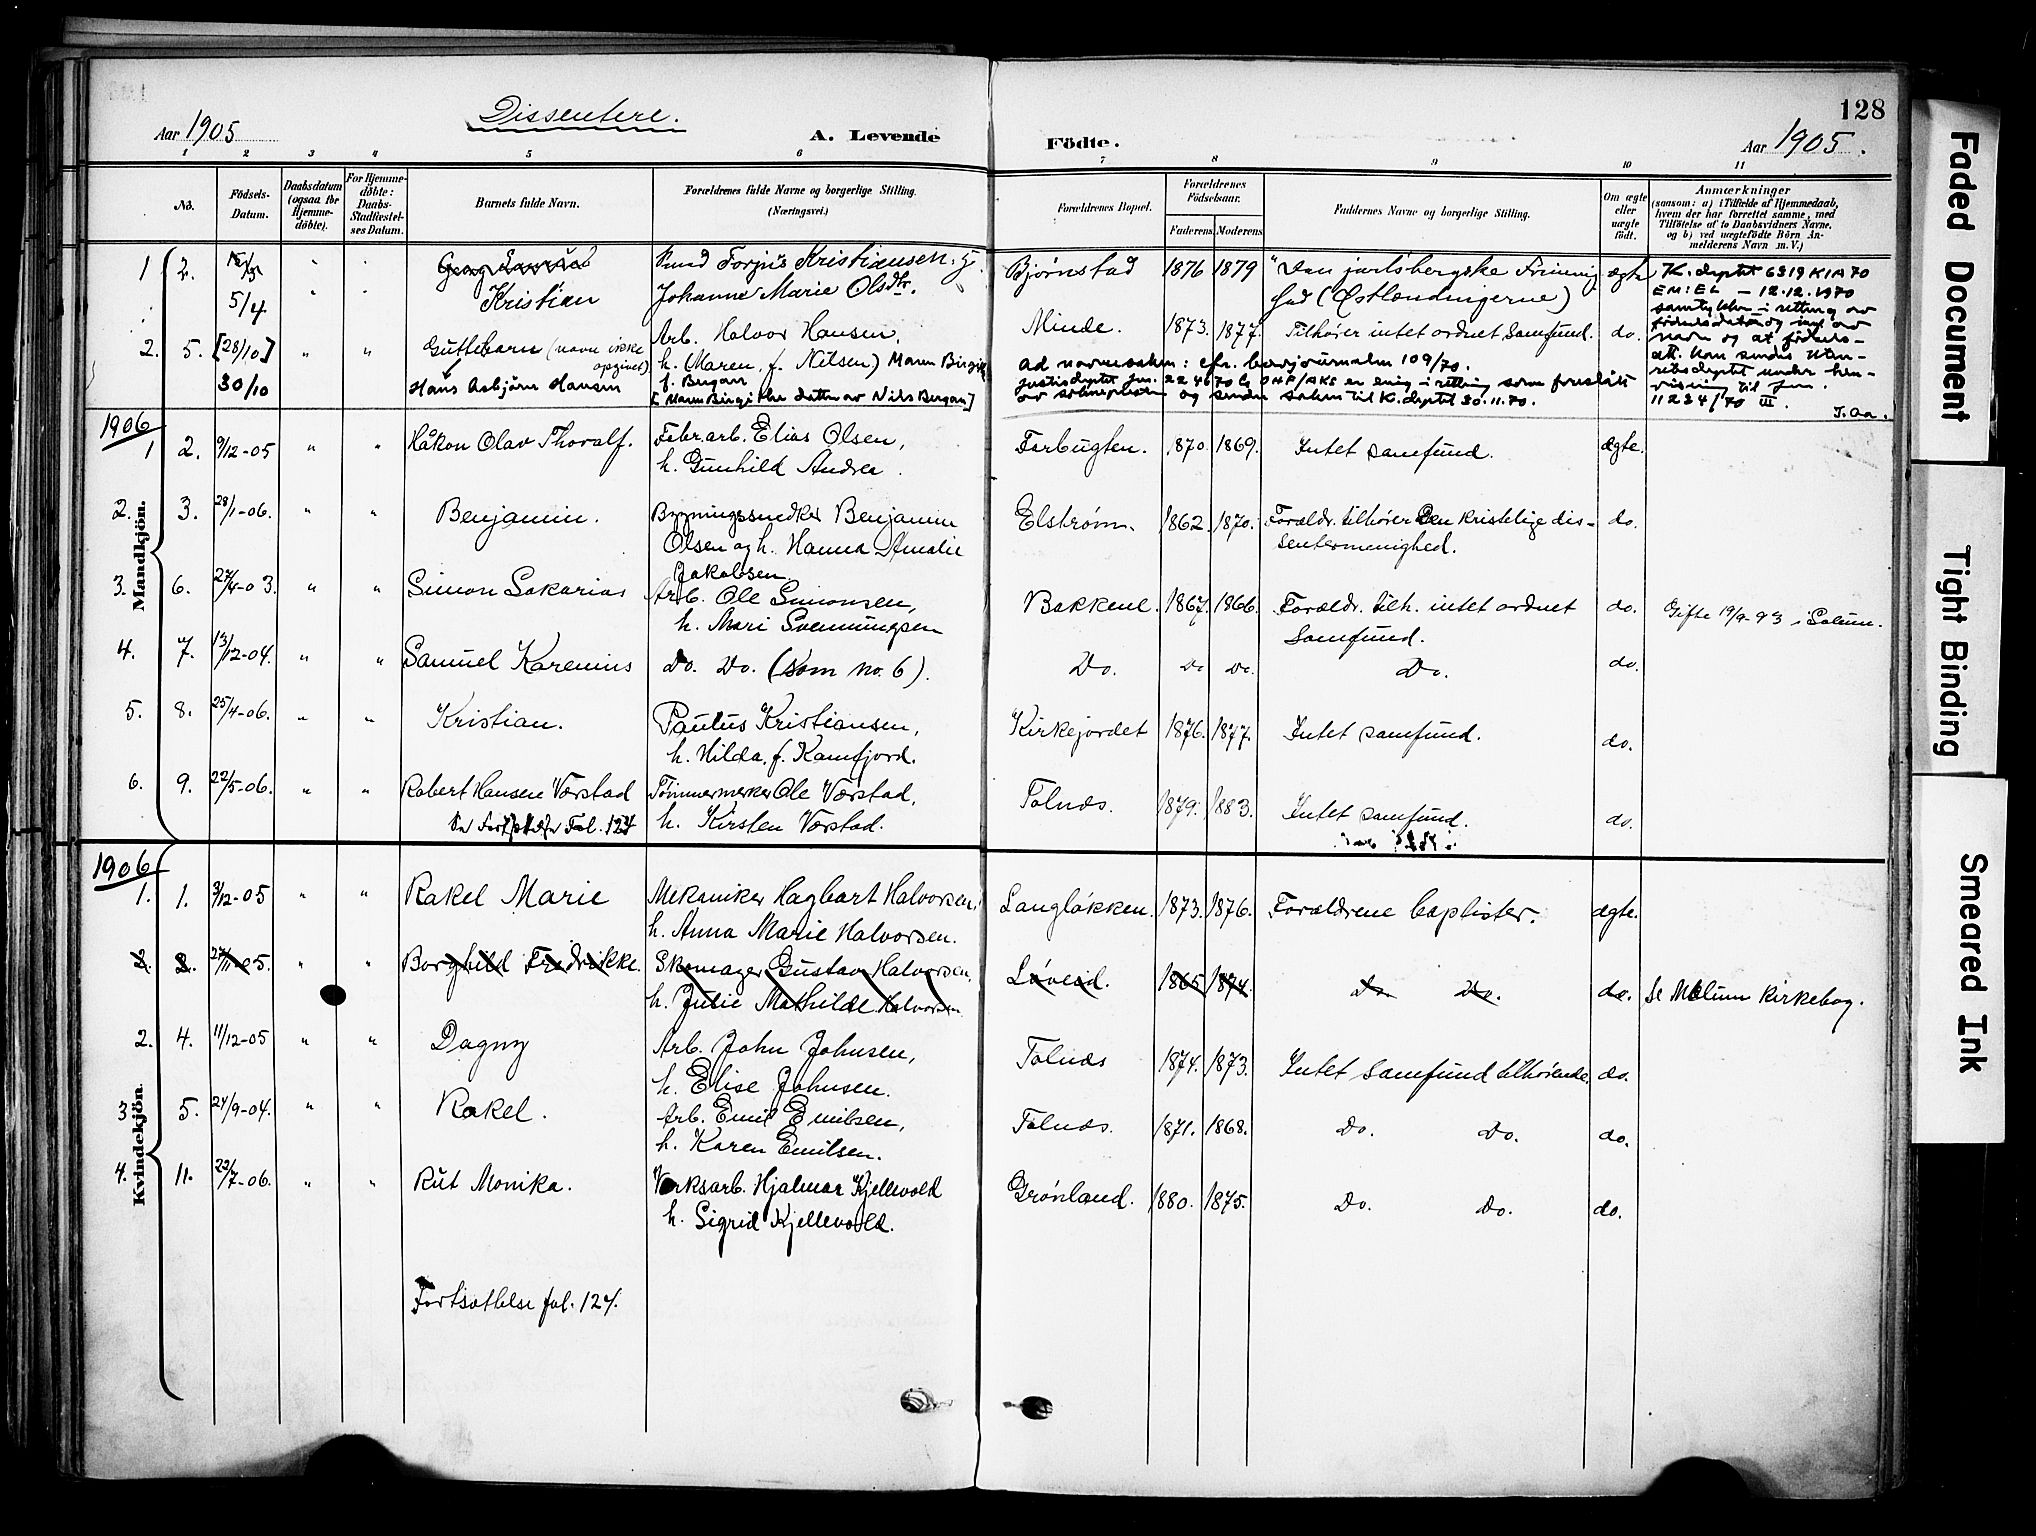 128
Dissentere.
Aar 1905
A. Levende
Födte.
Aar 1905.
1 2 3 4 5 6 7 8 9 10 11
No. Fødsels-Datum. Daabsdatum (ogsaa for Hjemme-døbte). For Hjemme-døbte: Daabs-Stadfæstel-ses Datum. Barnets fulde Navn. Forældrenes fulde Navne og borgerlige Stilling. (Næringsvei.) Forældrenes Bopæl. Forældrenes Fødselsaar. Faderens. Moderens. Faddernes Navne og borgerlige Stilling. Om ægte eller uægte født. Anmærkninger (saasom: a) i Tilfælde af Hjemmedaab, hvem der har forrettet samme, med Tilføielse af to Daabsvidners Navne, og b) ved uægtefödte Börn An-melderens Navn m. V.)
1 2. 5/4 Kristian
Knud Torjus Kristiansen. g.
Johanne Marie Olsdtr.
Bjørnstad 1876 1879 "Den jarlsbergske Frimenig-
hed (Østlændingerne) ægte
K. deptet 6319 KIA 70
EM:EL – 12.12.1970
samtykker i retting av
fødselsdato og inf av
navn og at fødsels-
att. kan sendes Uten-
riksdeptet under hen-
visning til Jnr.
11234/70 III.
T. Aa.
2. 5. [28/10] 30/10 Guttebarn (navn ikke
opgivet)
Hans Asbjørn Hansen
Arb. Halvor Hansen,
h. (Maren, f. Nilsen) Maren Birgitte
f. Bergan
[Maren Birgitte datter av Nils Bergan]
Minde. 1873. 1877. Tilhører intet ordnet Samfund. do.
Ad navnesaken: cfr. brevjournalen 109/70.
Justisdeptet Jnr. 2246 70 G OHF/AKS er enig i retting som foreslått
av sokneprest og sender saken til K. deptet 30.11.70.
1906
1 2. 9/12-05 " " Håkon Olav Thoralf. Fabr.arb. Elias Olsen,
h. Gunhild Andrea. Farbugten. 1870. 1869. Intet samfund. ægte.
Mandkjön.
2. 3. 28/1-06. " " Benjamin. Bygningssnedker Benjamin
Olsen og h. Hanna Amalie
Jakobsen Elstrøm. 1862. 1870. Forældr. tilhører Den kristelige dis-
sentermenighed. do.
3. 6. 27/4-03. " " Simon Sakarias Arb. Ole Simonsen,
h. Mari Svenningsen Bakkene. 1867. 1866. Forældr. tilh. intet ordnet
Samfund. do. Gifte 19/9-93 i Solum.
4. 7. 13/12-04. " " Samuel Karenius Do. Do. (som no. 6). Do. Do Do. Do. do.
5. 8. 25/4-06. " " Kristian. Paulus Kristiansen,
h. Hilda, f. Kamfjord. Kirkejordet 1876. 1877. Intet samfund. do.
6. 9. 22/5-06. " " Robert Hansen Værstad Tømmermerker Ole Værstad,
h. Kirsten Værstad. Tolnæs. 1879. 1883. Intet samfund. do.
Se Fortsættelse Fol. 124
1906
1. 1. 3/12-05 " " Rakel Marie Mekaniker Hagbart Halvorsen,
h. Anna Marie Halvorsen. Langløkken. 1873. 1876. Forældrene baptister. ægte.
2. 2. 27/11-05. " " Borghild Fredrikke. Skomager Gustav Halvorsen,
h. Julie Mathilde Halvorsen Løveid. 1865 1874. Do. Do. do. Se Melum kirkebog.
Kvindekjön.
2. 4. 11/12-05 " " Dagny Arb. John Johnsen,
h. Elise Johnsen. Tolnæs 1874. 1873. Intet samfund tilhørende. do.
3 5. 24/9-04. " " Rakel. Arb. Emil Emilsen,
h. Karen Emilsen. Tolnæs. 1871. 1868. Do. Do. do.
4. 11. 22/7-06. " " Rut Monika. Verksarb. Hjalmar Kjellevold
h. Sigrid Kjellevold. Grønland. 1880. 1875. Do. Do. do.
Fortsættelse fol. 124.
Faded Document
Tight Binding
Smeared Ink